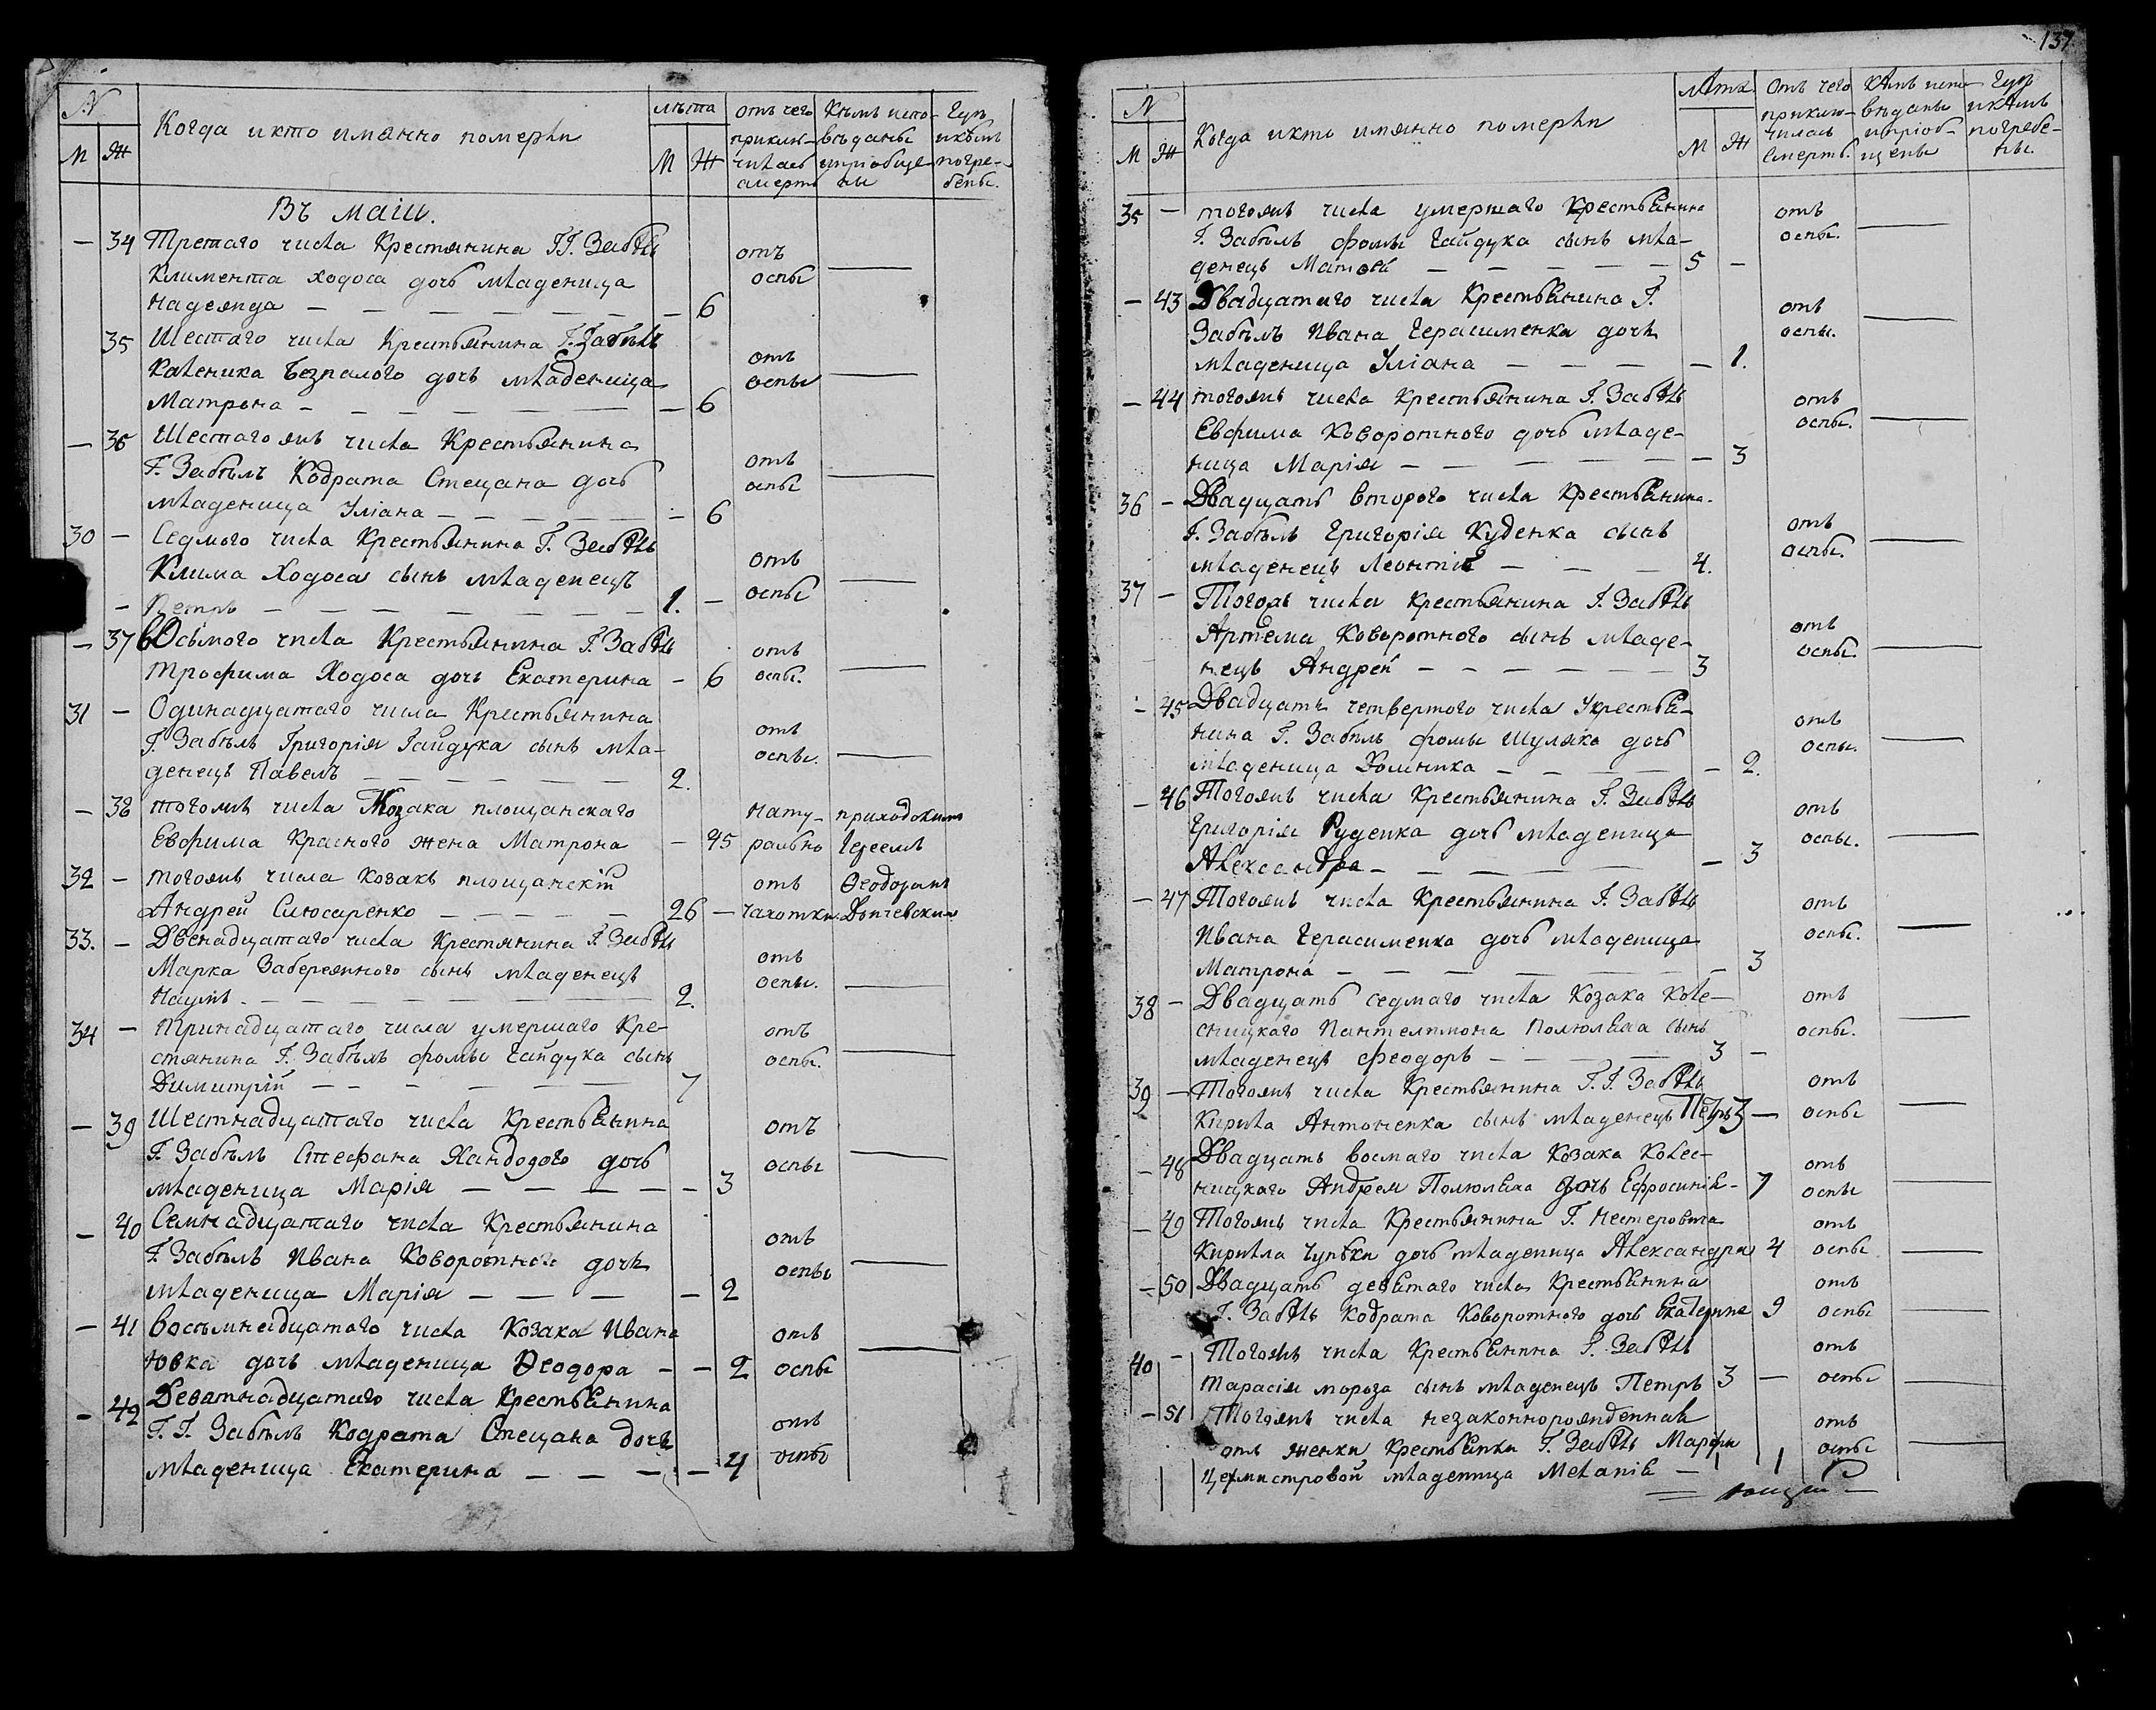 137
N
М Ж
Когда и кто имянно померли
лѣта
М Ж
отъ чего приклю-чилась смерть
Кѣмъ испо-вѣданы и пріобще-ны
Гдѣ и кѣмъ погре-бены.
Въ маіи.
— 34 Третаго числа Крестянина ГГ. Забѣлъ
Климента ходоса дочь младеница
надежда — — — — — — — 6 отъ оспы
35 Шестаго числа Крестьянина Г. Забѣлъ
Каленика Безпалого дочь младеница
Матрона — — — — — — 6 отъ оспы
— 36 Шестагожъ числа Крестьянина
Г. Забѣлъ Кодрата Стецана дочь
младеница Уліана — — — — — 6 отъ оспы
30 — Седмого числа Крестьянина Г. Забѣлъ
Клима Ходоса сынъ младенецъ
— Петръ — — — — — — — 1. — отъ оспы
— 37 Восьмого числа Крестьянина Г. Забѣлъ
Трофима Ходоса дочь Екатерина — 6 отъ оспы.
31 — Одинадцатаго числа Крестьянина
Г. Забѣлъ Григорія Гайдука сынъ мла-
денецъ Павелъ — — — — — — 2. отъ оспы.
— 38 тогожъ числа Козака площанскаго
Евфима Красного жена Матрона — 45 нату-рально приходскимъ Іереемъ
32 — тогожъ числа козакъ площанскій
Андрей Слюсаренко — — — — — 26 — отъ чахотки Ѳеодоромъ
33. — Двенадцатаго числа Крестянина Г. Забѣлъ
Марка Забережного сынъ младенецъ
Наумъ — — — — — — 2. отъ оспы.
34 — Тринадцатаго числа умершаго Кре-
стянина Г. Забѣлъ фомы Гайдука сынъ
Димитрій — — — — — — 7 отъ оспы.
— 39 Шестнадцатаго числа Крестьянина
Г. Забѣлъ Стефана Хандогого дочь
младеница Марія — — — — — 3 отъ оспы
— 40 Семнадцатаго числа Крестьянина
Г. Забѣлъ Ивана Коворотного дочь
младеница Марія — — — — 2 отъ оспы
— 41 Восьмнадцатаго числа Козака Ивана
Ювка дочь младеница Ѳеодора — — 2 отъ оспы
— 42 Деватнадцатаго числа Крестьянина
Г. Г. Забѣлъ Кодрата Стецана дочь
младеница Екатерина — — — — 4 отъ оспы
N
М Ж
Когда и кто имянно померли
лѣта
М Ж
Отъ чего приклю-чилась смерть.
Кѣмъ испо-вѣданы и пріоб-щены
Гдѣ и кѣмъ погребе-ны.
35 — тогожъ числа умершаго Крестьянина
Г. Забѣлъ фомы Гайдука сынъ мла-
денецъ Матвѣй — — — — — 5 — отъ оспы.
— 43 Двадцатаго числа Крестьянина Г.
Забѣлъ Ивана Герасименка дочь
младеница Уліана — — — — 1. отъ оспы.
— 44 тогожъ числа Крестьянина Г. Забѣлъ
Евфима Коворотного дочь младе-
ница Марія — — — — — — 3 отъ оспы.
36 — Двадцать второго числа Крестьянина
Г. Забѣлъ Григорія Куденка сынъ
младенецъ Леонтій — — — 4. отъ оспы.
37 — Тогожъ числа Крестьянина Г. Забѣлъ
Артема Коворотного сынъ младе-
нецъ Андрей — — — — — — 3 отъ оспы.
— 45 Двадцать четвертого числа Укрестья-
нина Г. Забѣлъ фомы Шуляка дочь
младеница Домника — — — — — 2. отъ оспы.
— 46 Тогожъ числа Крестьянина Г. Забѣлъ
Григорія Руденка дочь младеница
Александра — — — — — — 3 отъ оспы.
— 47 Тогожъ числа Крестьянина Г. Забѣлъ
Ивана Герасименка дочь младеница
Матрона — — — — — — — 3 отъ оспы.
38 — Двадцать седмаго числа Козака Коле-
сницкаго Пантелимона Полюляха сынъ
младенецъ феодоръ — — — — 3 — отъ оспы.
39 — Тогожъ числа Крестьянина Г. Г. Забѣлъ
Кирила Антоненка сынъ младенецъ Петръ 3 — отъ оспы
— 48 Двадцать восмаго числа Козака Колес-
ницкаго Андрея Полюляха дочь Ефросинія — 7 отъ оспы
— 49 Тогожъ числа Крестьянина Г. Нестеровича
Кирилла Чупъки дочь младеница Александра 4 отъ оспы
— 50 Двадцать девятаго числа Крестьянина
Г. Забѣлъ Кодрата Коворотного дочь Екатерина 9 отъ оспы
40 — Тогожъ числа Крестьянина Г. Забѣлъ
Тарасія мороза сынъ младенецъ Петръ 3 — отъ оспы
— 51 Тогожъ числа незаконнорожденная
отъ женки Крестьянки Г. Забѣлъ Марфы
младеница Меланія — 1 отъ оспы